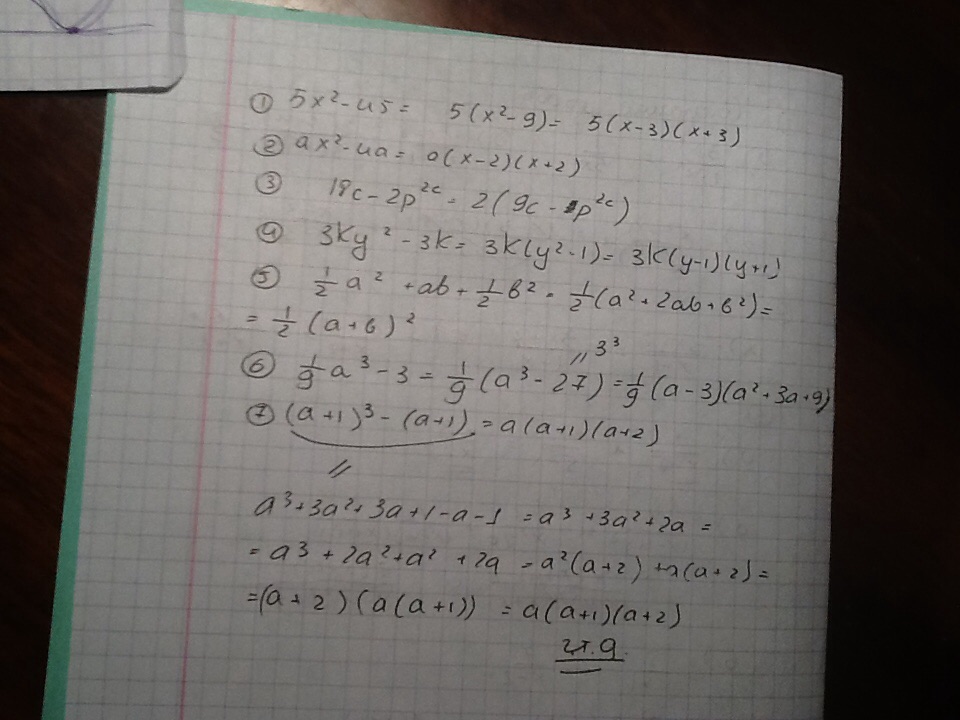 ① 5x² - 45 = 5(x² - 9) = 5(x - 3)(x + 3)
② ax² - 4a = a(x - 2)(x + 2)
③ 18c - 2p²ᶜ = 2(9c - p²ᶜ)
④ 3ky² - 3k = 3k(y² - 1) = 3k(y - 1)(y + 1)
⑤ 1/2 a² + ab + 1/2 b² = 1/2 (a² + 2ab + b²) =
= 1/2 (a + b)²
// 3³
⑥ 1/9 a³ - 3 = 1/9 (a³ - 27) = 1/9 (a - 3)(a² + 3a + 9)
⑦ (a + 1)³ - (a + 1) = a(a + 1)(a + 2)
//
a³ + 3a² + 3a + 1 - a - 1 = a³ + 3a² + 2a =
= a³ + 2a² + a² + 2a = a²(a + 2) + a(a + 2) =
= (a + 2)(a(a + 1)) = a(a + 1)(a + 2)
ч.т.д.